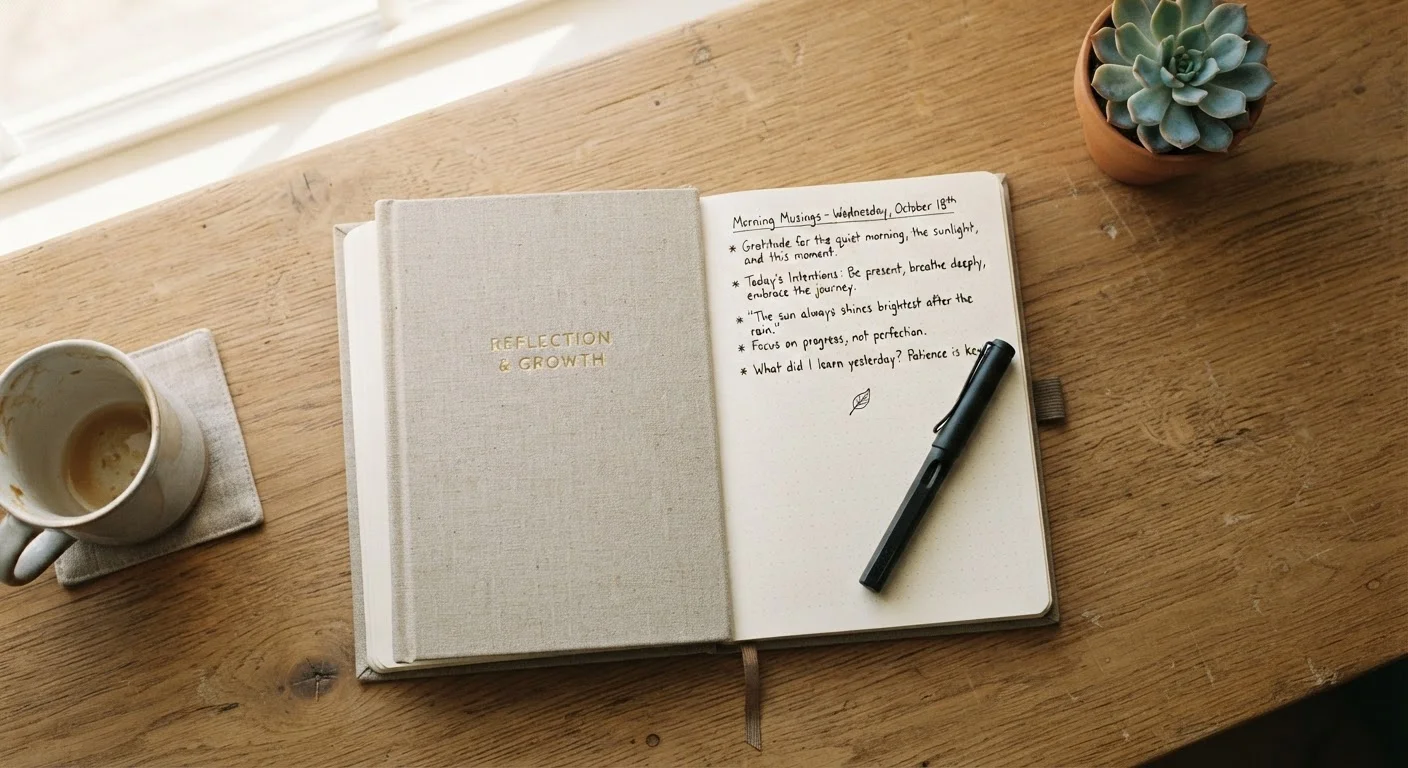 REFLECTION
& GROWTH
Morning Musings - Wednesday, October 18th
* Gratitude for the quiet morning, the sunlight,
and this moment.
* Today's Intentions: Be present, breathe deeply,
embrace the journey.
* "The sun always shines brightest after the
rain."
* Focus on progress, not perfection.
* What did I learn yesterday? Patience is